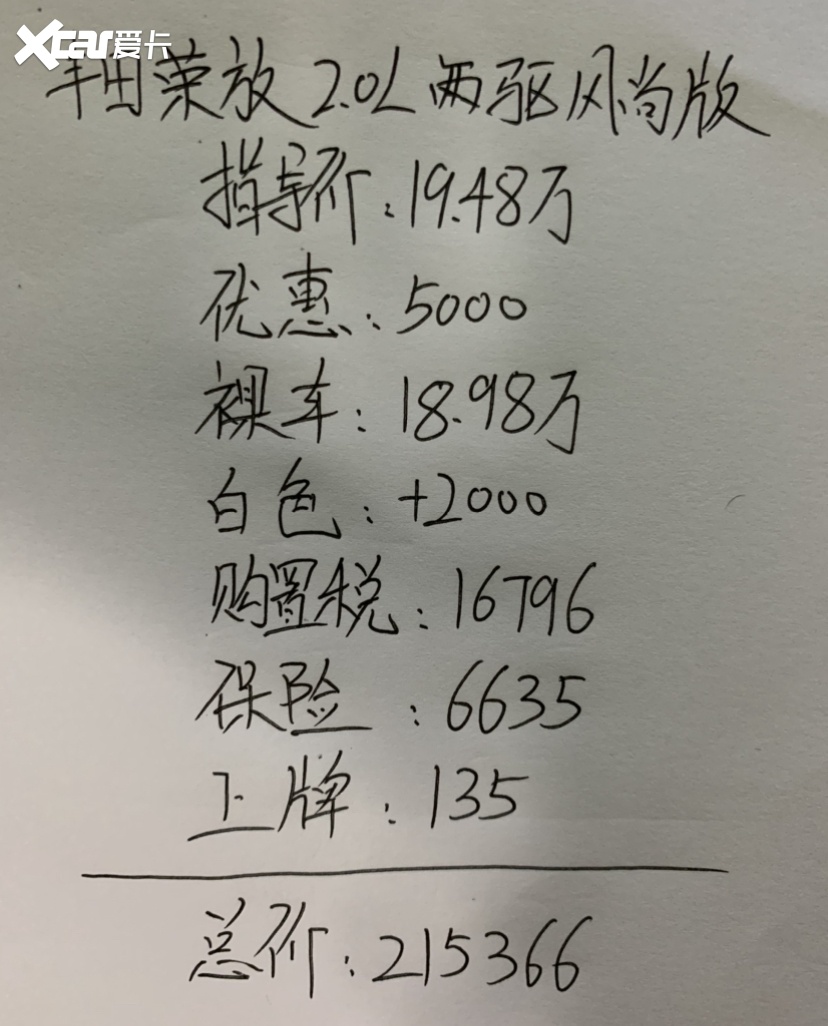 Xcar爱卡
丰田荣放2.0L两驱风尚版
指导价:19.48万
优惠:5000
裸车:18.98万
白色:+2000
购置税:16796
保险:6635
上牌:135
总价:215366